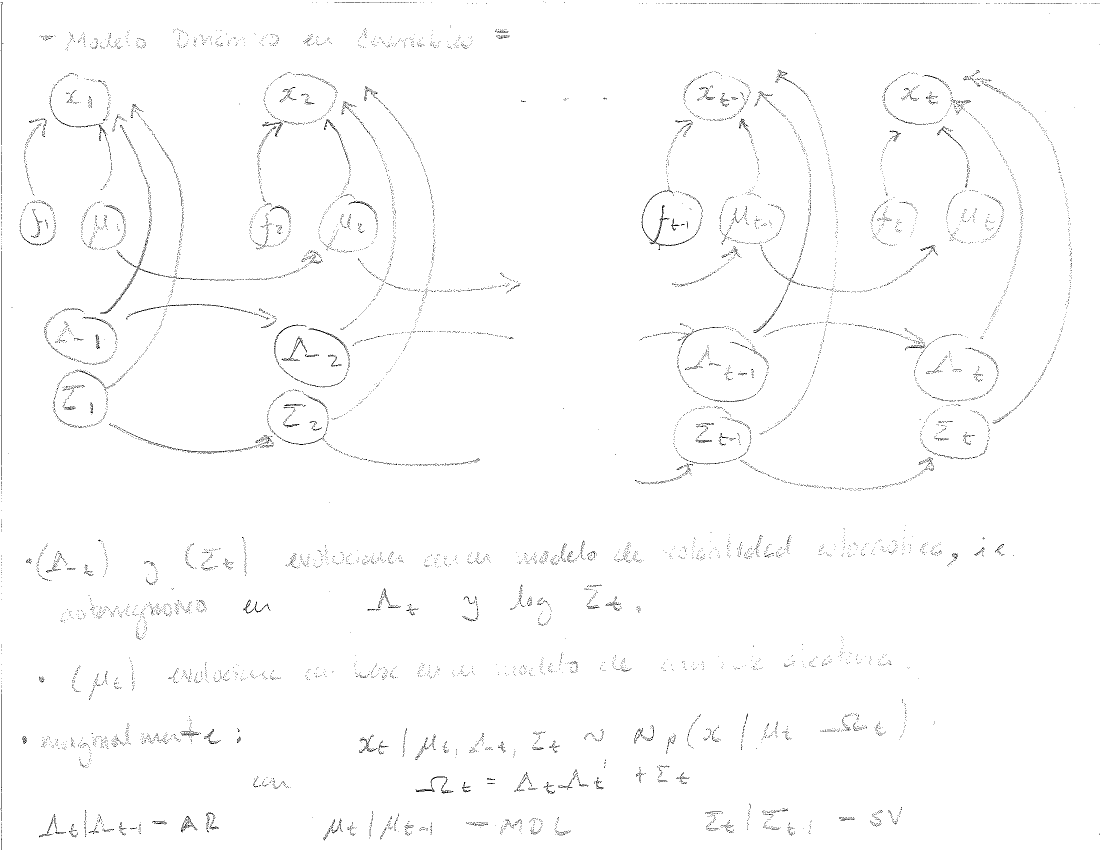 - Modelo Dinámico en
x1 x2 . . . xt-1 xt
f1 μ1 f2 μ2 ft-1 μt-1 ft μt
Λ1 Λ2 Λt-1 Λt
Σ1 Σ2 Σt-1 Σt
• (Λt) y (Σt) evoluciona con un modelo de volatilidad estocástica, i.e.
autorregresivo en Λt y log Σt.
• (μt) evoluciona con base en un modelo de caminata aleatoria.
• marginalmente: xt | μt, Λt, Σt ~ Np(x | μt Ωt)
con Ωt = ΛtΛt' + Σt
Λt|Λt-1 - AR μt|μt-1 - MDL Σt|Σt-1 - SV